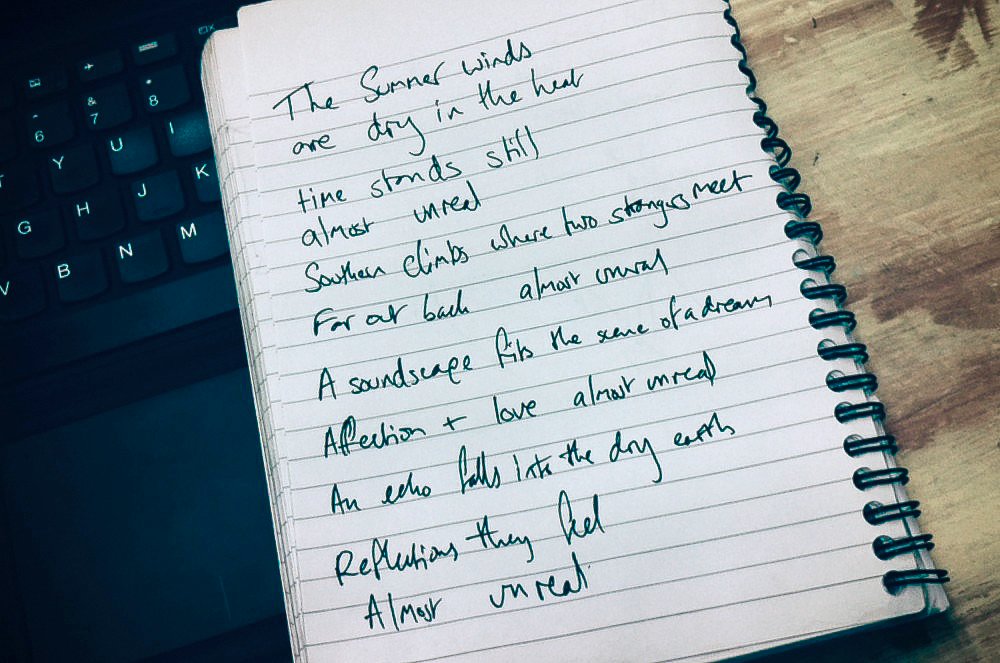 The Summer winds
are dry in the heat
time stands still
almost unreal
Southern climbs where two strangers meet
Far out back almost unreal
A soundscape fits the scene of a dream
Affection + love almost unreal
An echo falls into the dry earth
Reflections they feel
Almost unreal
^ & *
6 7 8
Y U I
G H J K
V B N M